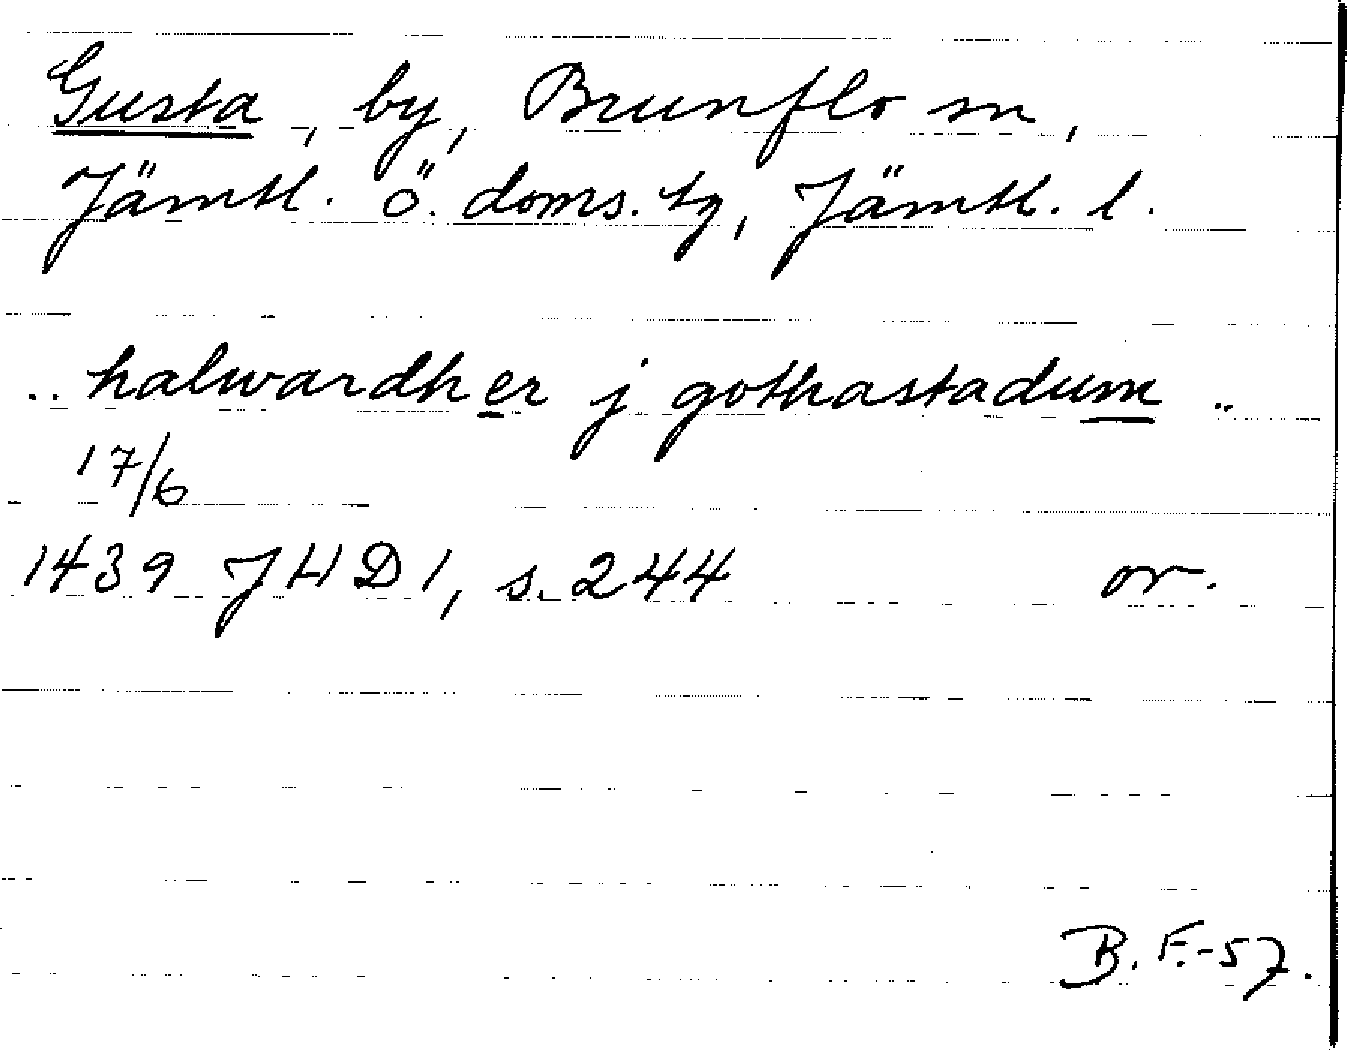 Gusta, by, Brunflo sn,
Jämtl. ö. doms. tg, Jämtl. l.
.. halwardher j gothastadum ..
17/6
1439 JHD 1, s. 244 or.
B. F.-57.